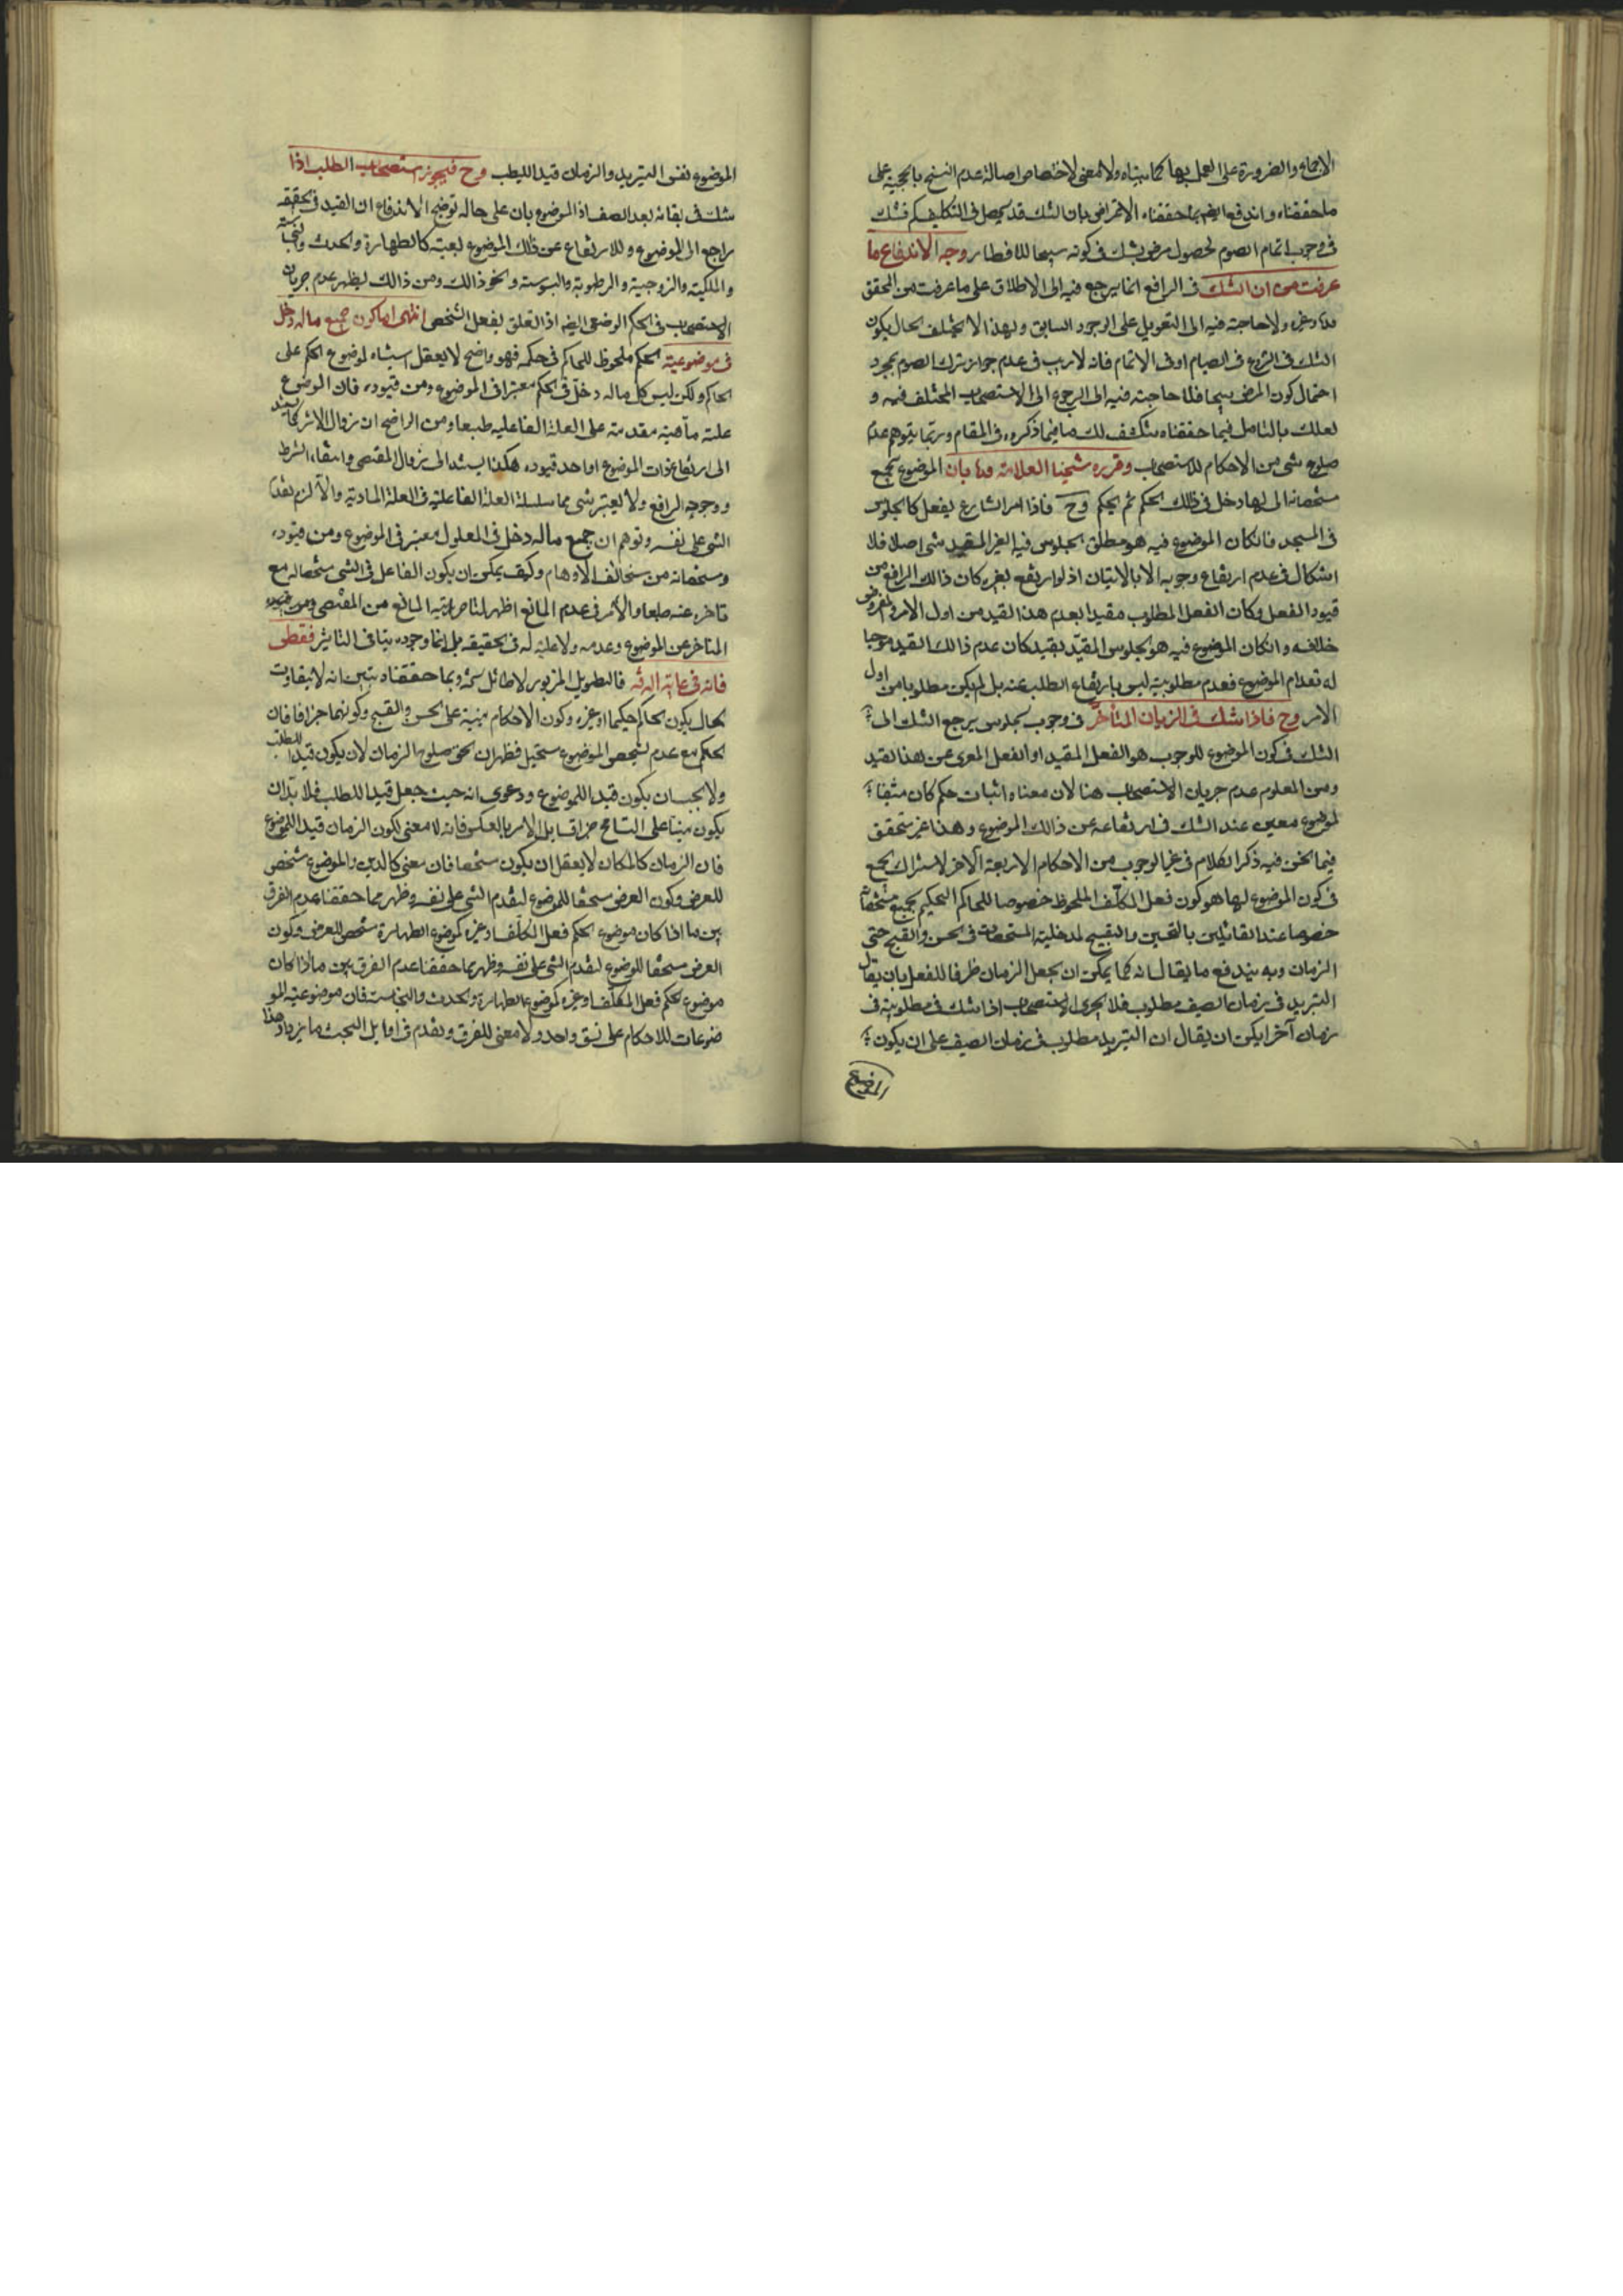 الاجماع والضرورة على العمل بها كما بيناه ولا معنى لاختصاص اصالة عدم النسخ بالحجية على
ما حققناه واندفع ايضا بما حققناه الاعتراض بان الشك قد يحصل في التكليف كم شك
في وجوب اتمام الصوم لحصول مرض يشك في كونه مبيحا للافطار وجه الاندفاع ما
عرفت من ان الشك في الرافع انما يرجع فيه الى الاطلاق على ما عرفت من المحقق
وغيره ولا حاجة فيه الى التعويل على الوجود السابق ولهذا لا يختلف الحال بكون
الشك في الشروع في الصيام او في الاتمام فانه لا ريب في عدم جواز ترك الصوم بمجرد
احتمال كون المرض مبيحا فلا حاجة فيه الى الرجوع الى الاستصحاب المختلف فيه و
لعلك بالتامل فيما حققناه ينكشف لك ما فيما ذكروه في المقام وربما يتوهم عدم
صلوح شئ من الاحكام للاستصحاب وقرره شيخنا العلامة بان الموضوع بجميع
مشخصاته التي لها دخل في ذلك الحكم ثم الحكم وح فاذا امر الشارع بفعل كالجلوس
في المسجد فان كان الموضوع فيه هو مطلق الجلوس فيه الغير المقيد بشئ اصلا فلا
اشكال في عدم ارتفاع وجوبه الا بالاتيان اذ لو ارتفع بغيره كان ذلك الرافع من
قيود الفعل وكان الفعل المطلوب مقيدا بعدم هذا القيد من اول الامر والمفروض
خلافه وان كان الموضوع فيه هو الجلوس المقيد بقيد كان عدم ذالك القيد موجبا
لانعدام الموضوع فعدم مطلوبيته ليس بارتفاع الطلب عنه بل لم يكن مطلوبا من اول
الامر وح فاذا شك في الزمان المتأخر في وجوب الجلوس يرجع الشك الى
الشك في كون الموضوع للوجوب هو الفعل المقيد او الفعل المعرى عن هذا القيد
ومن المعلوم عدم جريان الاستصحاب هنا لان معناه اثبات حكم كان متيقنا
لموضوع معين عند الشك في ارتفاعه عن ذالك الموضوع وهذا غير متحقق
فيما نحن فيه ذكر الكلام في غير الوجوب من الاحكام الاربعة الاخر لاشتراك الجميع
في كون الموضوع لها هو كون فعل المكلف الملحوظ خصوصا للحاكم الحكيم بجميع مشخصاته
خصوصا عند القائلين بالتحسين والتقبيح لمدخلية المشخصات في الحسن والقبح حتى
الزمان وبه يندفع ما يقال انه كما يمكن ان يجعل الزمان ظرفا للفعل بان يقال
التبريد في زمان الصيف مطلوب فلا يجرى الاستصحاب اذا شك في مطلوبيته في
زمان آخر يمكن ان يقال ان التبريد مطلوب في زمان الصيف على ان يكون
الموضوع
الموضوع نفس التبريد والزمان قيد للطلب وح فيجوز استصحاب الطلب اذا
شك في بقائه بعد الصيف اذ الموضوع باق على حاله توضيح الاندفاع ان القيد في الحقيقة
راجع الى الموضوع وللارتفاع عن ذلك الموضوع بعينه كالطهارة والحدث والنجاسة
والملكية والزوجية والرطوبة واليبوسة ونحو ذالك ومن ذالك يظهر عدم جريان
الاستصحاب في الحكم الوضعى ايضا اذا تعلق بفعل الشخص انتهى اما كون جميع ما له دخل
في موضوعية الحكم ملحوظ للحاكم في حكمه فهو واضح لا يعقل اشتباه لموضوع الحكم على
الحاكم ولكن ليس كل ما له دخل في الحكم معتبرا في الموضوع ومن قيوده فان الموضوع
علة مادية مقدمة على العلة الفاعلية طبعا ومن الواضح ان زوال الاثر كما يستند
الى ارتفاع ذات الموضوع او احد قيوده هكذا يستند الى زوال المقتضى وانتفاء الشرط
ووجود الرافع ولا يعتبر شئ مما سلسلة العلة الفاعلية في العلة المادية والا لزم تقدم
الشئ على نفسه وتوهم ان جميع ما له دخل في المعلول معتبر في الموضوع ومن قيوده
ومشخصاته من سخائف الاوهام وكيف يمكن ان يكون الفاعل في الشئ مشخصا له مع
تاخره عنه طبعا والامر في عدم المانع اظهر لتاخر رتبة المانع من المقتضى ومن قيوده
المتاخر عن الموضوع وعدمه ولا علية له في الحقيقة بل انما وجوده ينافى التاثير فقط
فانه في غاية الدقة فالتطويل المزبور لا طائل تحته وبما حققناه تبين انه لا يتفاوت
الحال بكون الحاكم حكيما او غيره وكون الاحكام مبنية على الحسن والقبح وكونهما جزافا فان
الحكم مع عدم تشخص الموضوع مستحيل فظهر ان نحو صلوح الزمان لان يكون قيدا للطلب
ولا يجب ان يكون قيدا للموضوع ودعوى انه حيث جعل قيدا للطلب فلا بد ان
يكون مبنيا على التسامح جزاف بل الامر بالعكس فانه لا معنى لكون الزمان قيدا للموضوع
فان الزمان كالمكان لا يعقل ان يكون مشخصا فان معنى والموضوع مشخص
للعرض وكون العرض مشخصا للموضوع لتقدم الشئ على نفسه وظهر مما حققنا عدم الفرق
بين ما اذا كان موضوع الحكم فعل المكلف او غيره كموضوع الطهارة مشخص للعرض وكون
العرض مشخصا للموضوع لتقدم الشئ على نفسه وظهر بما حققنا عدم الفرق بين ما اذا كان
موضوع الحكم فعل المكلف او غيره كموضوع الطهارة والحدث والنجاسة فان موضوعية المو
ضوعات للاحكام على نسق واحد ولا معنى للفرق وتقدم في اوايل البحث ما يزيد وهذا